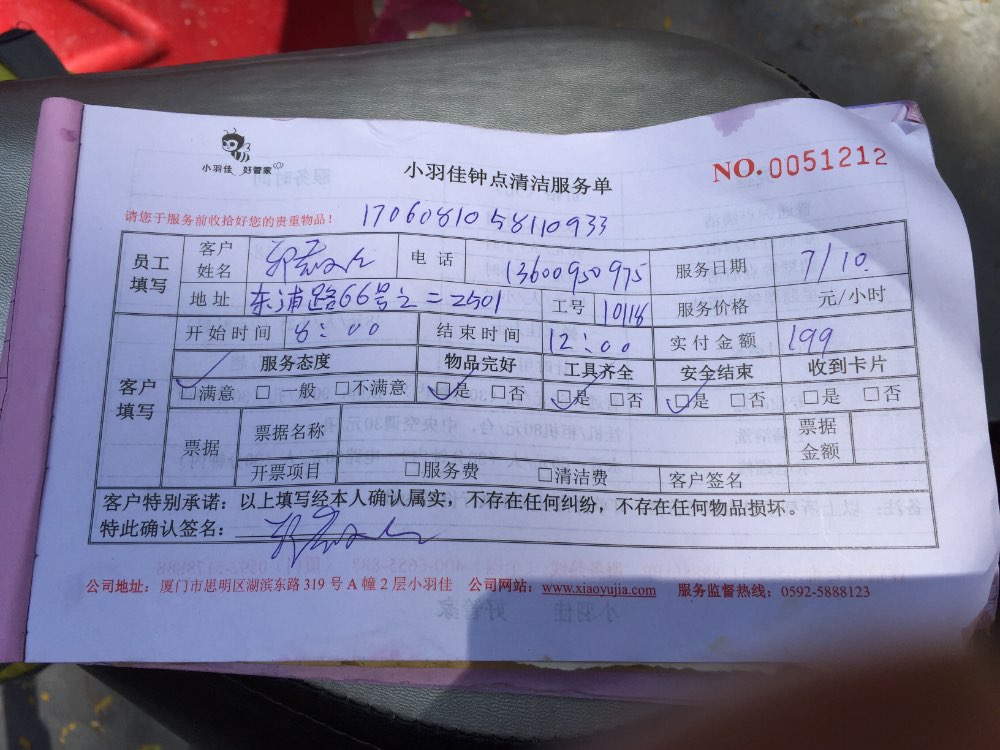 小羽佳 好管家
小羽佳钟点清洁服务单
NO.0051212
请您于服务前收拾好您的贵重物品！ 17060810 58110933
员工填写 客户姓名 电话 13600950975 服务日期 7/10.
地址 东浦路66号之二2501 工号 10118 服务价格 元/小时
客户填写 开始时间 8:00 结束时间 12:00 实付金额 199
服务态度 物品完好 工具齐全 安全结束 收到卡片
☑满意 □一般 □不满意 ☑是 □否 ☑是 □否 ☑是 □否 □是 □否
票据 票据名称 票据金额
开票项目 □服务费 □清洁费 客户签名
客户特别承诺：以上填写经本人确认属实，不存在任何纠纷，不存在任何物品损坏。
特此确认签名：
公司地址：厦门市思明区湖滨东路319号A幢2层小羽佳 公司网站：www.xiaoyujia.com 服务监督热线：0592-5888123